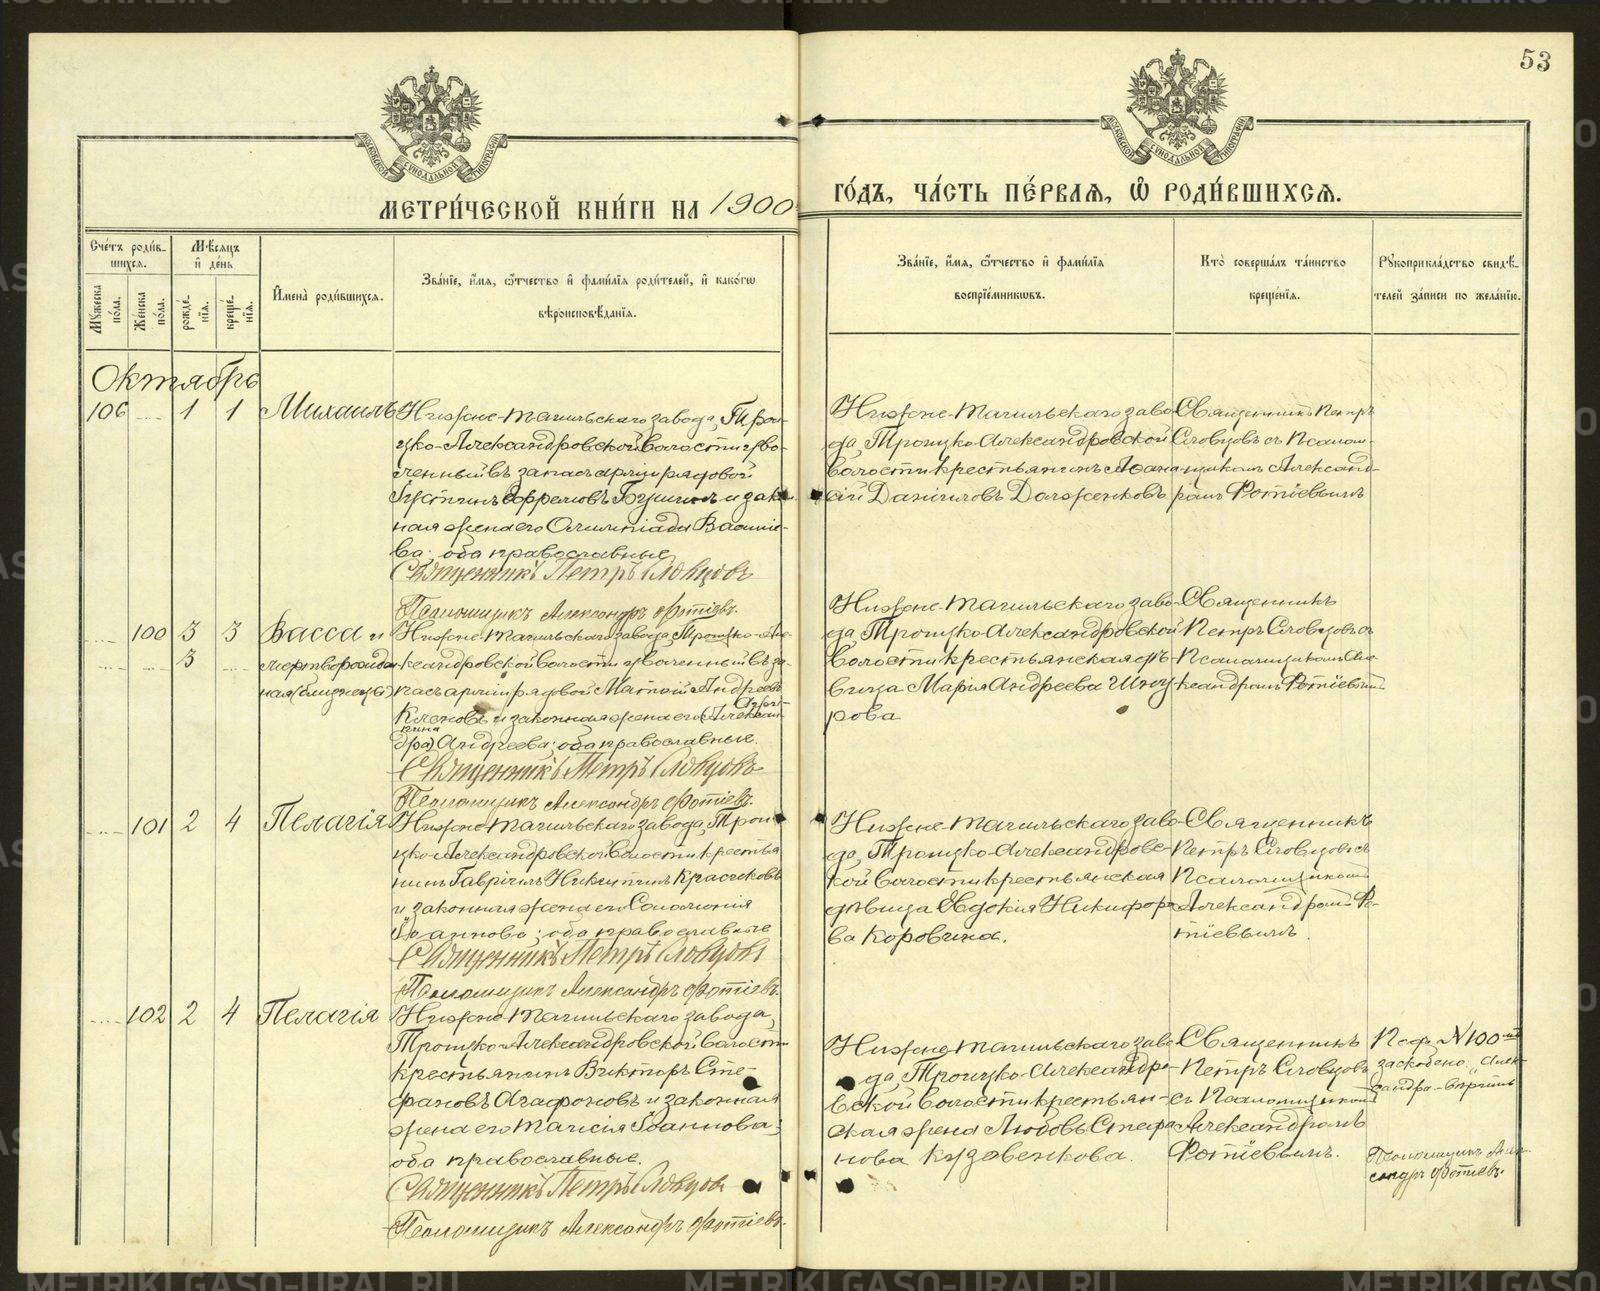 53
МЕТРИ́ЧЕСКОЙ КНИ́ГИ НА 1900
ГО́ДЪ, ЧА́СТЬ ПЕ́РВАЯ, Ѡ҆ РОДИ́ВШИХСЯ.
Сче́тъ роди́в-
шихся.
Мꙋ́жеска по́ла.
Же́нска по́ла.
Мѣ́сяцъ
и҆ де́нь
рожде́-
нїя.
креще́-
нїя.
И҆мена̀ роди́вшихся.
Зва́нїе, и҆́мя, ѻ҆́тчество и҆ фами́лїя роди́телей, и҆ како́гѡ
вѣроисповѣ́данїя.
Зва́нїе, и҆́мя, ѻ҆́тчество и҆ фами́лїя
воспрїе́мникѡвъ.
Кто̀ соверша́лъ та́инство
креще́нїя.
Рꙋкоприкла́дство свидѣ́-
телей за́писи по жела́нїю.
Октябрь
106 .... 1 1 Михаилъ
Нижне-Тагильскаго завода, Трои-
цко-Александровской волости уво-
ленный въ запас арміи рядовой
Іустинъ Ефремовъ и зако-
ная жена его Олимпіада Василіе-
ва; оба православные
Священникъ Петръ Словцовъ
Псаломщикъ Александръ Фотіевъ.
Нижне-Тагильскаго заво-
да, Троицко-Александровской
волости крестьянинъ Афана-
сій Даніиловъ Долженковъ
Священникъ Петръ
Словцовъ съ Псалом-
щикомъ Александ-
ромъ Фотіевымъ
.... 100 3 3 Васса и
.... .... 3 .... мертворожден-
ная (близнецы)
Нижне-Тагильскаго завода, Троицко-Але-
ксандровской волости уволенный въ за-
пасъ арміи рядовой Матѳій Андреевъ
Клековъ и законная жена его (Алексан-
дра) Андреева; оба православные.
Священникъ Петръ Словцовъ
Псаломщикъ Александръ Фотіевъ.
Нижне-Тагильскаго заво-
да, Троицко-Александровской
волости крестьянская дѣ-
вица Марія Андреева
Священникъ
Петръ Словцовъ съ
Псаломщикомъ Але-
ксандромъ Фотіевымъ
.... 101 2 4 Пелагія
Нижне-Тагильскаго завода, Трои-
цко-Александровской волости крестья-
нинъ Гавріилъ Никитинъ Красиковъ
и законная жена его Соломонія
Іоаннова; оба православные
Священникъ Петръ Словцовъ
Псаломщикъ Александръ Фотіевъ.
Нижне-Тагильскаго заво-
да, Троицко-Александровс-
кой волости крестьянская
дѣвица Евдокія Никифоро-
ва Коровина.
Священникъ
Петръ Словцовъ съ
Псаломщикомъ
Александромъ Фо-
тіевымъ
.... 102 2 4 Пелагія
Нижне-Тагильскаго завода,
Троицко-Александровской волости
крестьянинъ Викторъ Сте-
фановъ Агафоновъ и законная
жена его Таисія Іоаннова;
оба православные.
Священникъ Петръ Словцовъ
Псаломщикъ Александръ Фотіевъ.
Нижне-Тагильскаго заво-
да, Троицко-Александро-
вской волости крестьян-
ская жена Любовь Стефа-
нова Кузовенкова.
Священникъ
Петръ Словцовъ
съ Псаломщикомъ
Александромъ
Фотіевымъ.
№ 100-мъ
заскоблено: "Алек-
сандра"
Псаломщикъ Алек-
сандръ Фотіевъ.
METRIKI.GASO-URAL.RU